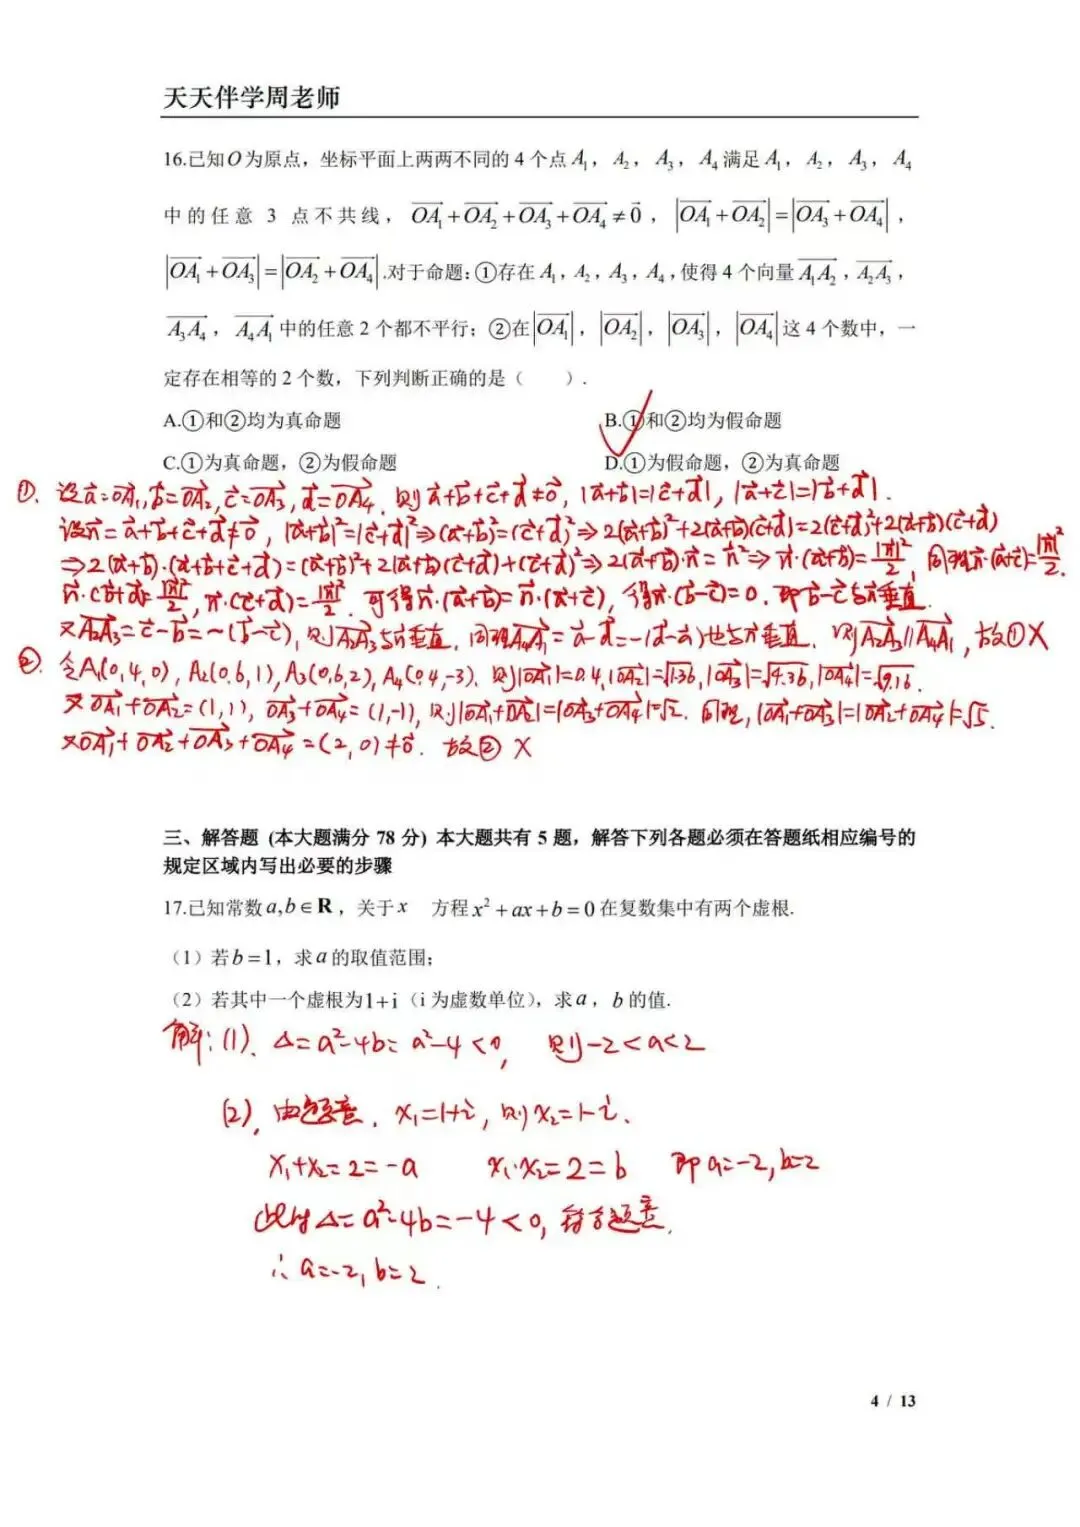 天天伴学周老师
16.已知O为原点，坐标平面上两两不同的 4 个点 A₁，A₂，A₃，A₄ 满足 A₁，A₂，A₃，A₄
中的任意 3 点不共线，$\overrightarrow{OA_1}+\overrightarrow{OA_2}+\overrightarrow{OA_3}+\overrightarrow{OA_4}\neq\vec{0}$，$|\overrightarrow{OA_1}+\overrightarrow{OA_2}|=|\overrightarrow{OA_3}+\overrightarrow{OA_4}|$，
$|\overrightarrow{OA_1}+\overrightarrow{OA_3}|=|\overrightarrow{OA_2}+\overrightarrow{OA_4}|$.对于命题：①存在 A₁，A₂，A₃，A₄，使得 4 个向量 $\overrightarrow{A_1A_2}$，$\overrightarrow{A_2A_3}$，
$\overrightarrow{A_3A_4}$，$\overrightarrow{A_4A_1}$ 中的任意 2 个都不平行；②在 $|\overrightarrow{OA_1}|$，$|\overrightarrow{OA_2}|$，$|\overrightarrow{OA_3}|$，$|\overrightarrow{OA_4}|$ 这 4 个数中，一
定存在相等的 2 个数，下列判断正确的是（　　）.
A.①和②均为真命题　　B.①和②均为假命题
C.①为真命题，②为假命题　　D.①为假命题，②为真命题
①. 设 $\vec{a}=\overrightarrow{OA_1},\vec{b}=\overrightarrow{OA_2},\vec{c}=\overrightarrow{OA_3},\vec{d}=\overrightarrow{OA_4}$. 则 $\vec{a}+\vec{b}+\vec{c}+\vec{d}\neq\vec{0}$, $|\vec{a}+\vec{b}|=|\vec{c}+\vec{d}|$, $|\vec{a}+\vec{c}|=|\vec{b}+\vec{d}|$.
设 $\vec{n}=\vec{a}+\vec{b}+\vec{c}+\vec{d}\neq\vec{0}$, $|\vec{a}+\vec{b}|^2=|\vec{c}+\vec{d}|^2\Rightarrow(\vec{a}+\vec{b})^2=(\vec{c}+\vec{d})^2\Rightarrow 2(\vec{a}+\vec{b})^2+2(\vec{a}+\vec{b})(\vec{c}+\vec{d})=2(\vec{c}+\vec{d})^2+2(\vec{a}+\vec{b})(\vec{c}+\vec{d})$
$\Rightarrow 2(\vec{a}+\vec{b})\cdot(\vec{a}+\vec{b}+\vec{c}+\vec{d})=(\vec{a}+\vec{b})^2+2(\vec{a}+\vec{b})(\vec{c}+\vec{d})+(\vec{c}+\vec{d})^2\Rightarrow 2(\vec{a}+\vec{b})\cdot\vec{n}=\vec{n}^2\Rightarrow\vec{n}\cdot(\vec{a}+\vec{b})=\frac{|\vec{n}|^2}{2}$, 同理 $\vec{n}\cdot(\vec{a}+\vec{c})=\frac{|\vec{n}|^2}{2}$.
$\vec{n}\cdot(\vec{b}+\vec{d})=\frac{|\vec{n}|^2}{2}$, $\vec{n}\cdot(\vec{c}+\vec{d})=\frac{|\vec{n}|^2}{2}$. 可得 $\vec{n}\cdot(\vec{a}+\vec{b})=\vec{n}\cdot(\vec{a}+\vec{c})$, 得 $\vec{n}\cdot(\vec{b}-\vec{c})=0$. 即 $\vec{b}-\vec{c}$ 与 $\vec{n}$ 垂直.
又 $\overrightarrow{A_2A_3}=\vec{c}-\vec{b}=-(\vec{b}-\vec{c})$, 则 $\overrightarrow{A_2A_3}$ 与 $\vec{n}$ 垂直. 同理 $\overrightarrow{A_4A_1}=\vec{a}-\vec{d}=-(\vec{d}-\vec{a})$ 也与 $\vec{n}$ 垂直. 则 $\overrightarrow{A_2A_3}//\overrightarrow{A_4A_1}$, 故①X
②. 令 A₁(0.4,0), A₂(0.6,1), A₃(0.6,2), A₄(0.4,-3). 则 $|\overrightarrow{OA_1}|=0.4,|\overrightarrow{OA_2}|=\sqrt{1.36},|\overrightarrow{OA_3}|=\sqrt{4.36},|\overrightarrow{OA_4}|=\sqrt{9.16}$.
又 $\overrightarrow{OA_1}+\overrightarrow{OA_2}=(1,1)$, $\overrightarrow{OA_3}+\overrightarrow{OA_4}=(1,-1)$, 则 $|\overrightarrow{OA_1}+\overrightarrow{OA_2}|=|\overrightarrow{OA_3}+\overrightarrow{OA_4}|=\sqrt{2}$. 同理, $|\overrightarrow{OA_1}+\overrightarrow{OA_3}|=|\overrightarrow{OA_2}+\overrightarrow{OA_4}|=\sqrt{5}$.
又 $\overrightarrow{OA_1}+\overrightarrow{OA_2}+\overrightarrow{OA_3}+\overrightarrow{OA_4}=(2,0)\neq\vec{0}$. 故② X
三、解答题 (本大题满分 78 分) 本大题共有 5 题，解答下列各题必须在答题纸相应编号的
规定区域内写出必要的步骤
17.已知常数 a,b∈R，关于 x　方程 x²+ax+b=0 在复数集中有两个虚根.
（1）若 b=1，求 a 的取值范围；
（2）若其中一个虚根为 1+i（i 为虚数单位），求 a，b 的值.
解：(1). Δ=a²-4b=a²-4<0, 则-2<a<2
(2). 由题意. x₁=1+i, 则 x₂=1-i.
x₁+x₂=2=-a　x₁·x₂=2=b　即 a=-2,b=2
此时 Δ=a²-4b=-4<0, 符合题意.
∴ a=-2, b=2.
4 / 13